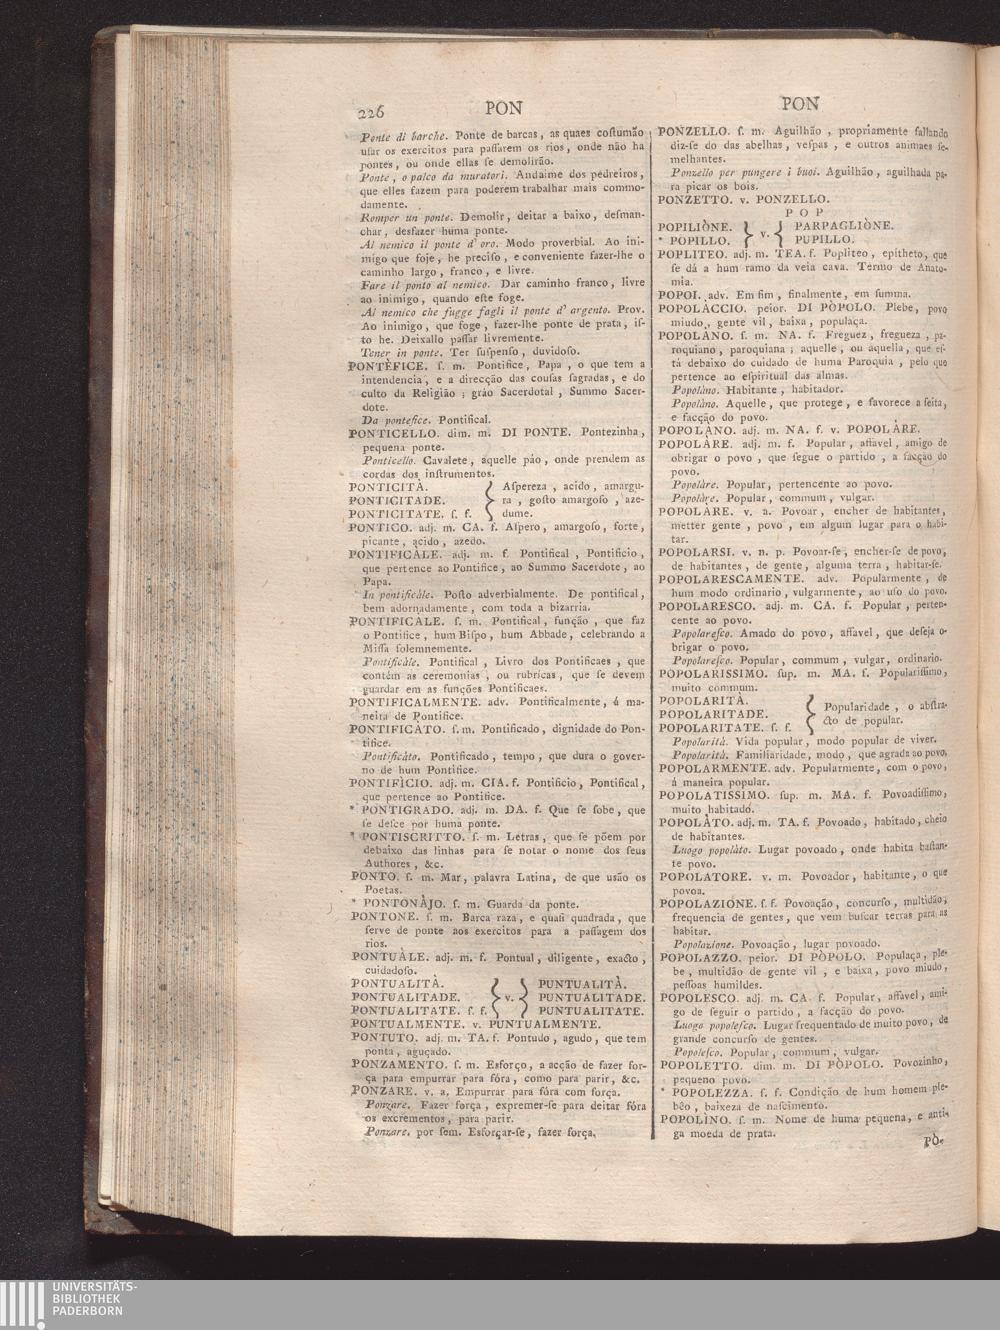 226
PON
Ponte di barche. Ponte de barcas, as quaes coſtumão
uſar os exercitos para paſſarem os rios, onde não ha
pontes, ou onde ellas ſe demolirão.
Ponte, o palco da muratori. Andaime dos pedreiros,
que elles fazem para poderem trabalhar mais commo-
damente.
Romper un ponte. Demolir, deitar a baixo, deſman-
char, desfazer huma ponte.
Al nemico il ponte d' oro. Modo proverbial. Ao ini-
migo que foje, he preciſo, e conveniente fazer-lhe o
caminho largo, franco, e livre.
Fare il ponto al nemico. Dar caminho franco, livre
ao inimigo, quando eſte foge.
Al nemico che fugge fagli il ponte d' argento. Prov.
Ao inimigo, que foge, fazer-lhe ponte de prata, iſ-
to he. Deixallo paſſar livremente.
Tener in ponte. Ter ſuſpenſo, duvidoſo.
PONTÈFICE. ſ. m. Pontifice, Papa, o que tem a
intendencia, e a direcção das couſas ſagradas, e do
culto da Religião; gráo Sacerdotal, Summo Sacer-
dote.
Da pontefice. Pontifical.
PONTICELLO. dim. m. DI PONTE. Pontezinha,
pequena ponte.
Ponticello. Cavalete, aquelle páo, onde prendem as
cordas dos inſtrumentos.
PONTICITÀ. } Aſpereza, acido, amargu-
PONTICITADE. } ra, goſto amargoſo, aze-
PONTICITATE. ſ. f. } dume.
PONTICO. adj. m. CA. f. Aſpero, amargoſo, forte,
picante, acido, azedo.
PONTIFICALE. adj. m. f. Pontifical, Pontificio,
que pertence ao Pontifice, ao Summo Sacerdote, ao
Papa.
In pontificàle. Poſto adverbialmente. De pontifical,
bem adornadamente, com toda a bizarria.
PONTIFICALE. ſ. m. Pontifical, função, que faz
o Pontifice, hum Biſpo, hum Abbade, celebrando a
Miſſa ſolemnemente.
Pontificàle. Pontifical, Livro dos Pontificaes, que
contém as ceremonias, ou rubricas, que ſe devem
guardar em as funções Pontificaes.
PONTIFICALMENTE. adv. Pontificalmente, á ma-
neira de Pontifice.
PONTIFICÀTO. ſ. m. Pontificado, dignidade do Pon-
tifice.
Pontificàto. Pontificado, tempo, que dura o gover-
no de hum Pontifice.
PONTIFÌCIO. adj. m. CIA. f. Pontificio, Pontifical,
que pertence ao Pontifice.
* PONTIGRADO. adj. m. DA. f. Que ſe ſobe, que
ſe deſce por huma ponte.
* PONTISCRITTO. ſ. m. Letras, que ſe põem por
debaixo das linhas para ſe notar o nome dos ſeus
Authores, &c.
PONTO. ſ. m. Mar, palavra Latina, de que usão os
Poetas.
* PONTONÀJO. ſ. m. Guarda da ponte.
PONTONE. ſ. m. Barca raza, e quaſi quadrada, que
ſerve de ponte aos exercitos para a paſſagem dos
rios.
PONTUÀLE. adj. m. f. Pontual, diligente, exacto,
cuidadoſo.
PONTUALITÀ. } { PUNTUALITÀ.
PONTUALITADE. } v. { PUNTUALITADE.
PONTUALITATE. ſ. f. } { PUNTUALITATE.
PONTUALMENTE. v. PUNTUALMENTE.
PONTUTO. adj. m. TA. f. Pontudo, agudo, que tem
ponta, aguçado.
PONZAMENTO. ſ. m. Esforço, a acção de fazer for-
ça para empurrar para fóra, como para parir, &c.
PONZARE. v. a. Empurrar para fóra com força.
Ponzare. Fazer força, expremer-ſe para deitar fóra
os excrementos, para parir.
Ponzare. por ſem. Esforçar-ſe, fazer força.
PON
PONZELLO. ſ. m. Aguilhão, propriamente fallando
diz-ſe do das abelhas, veſpas, e outros animaes ſe-
melhantes.
Ponzello per pungere i buoi. Aguilhão, aguilhada pa-
ra picar os bois.
PONZETTO. v. PONZELLO.
POP
POPILIÒNE. } v. { PARPAGLIÒNE.
* POPILLO. } { PUPILLO.
POPLITEO. adj. m. TEA. f. Popliteo, epitheto, que
ſe dá a hum ramo da veia cava. Termo de Anato-
mia.
POPOI. adv. Em fim, finalmente, em ſumma.
POPOLÀCCIO. peior. DI PÒPOLO. Plebe, povo
miudo, gente vil, baixa, populaça.
POPOLANO. ſ. m. NA. f. Freguez, fregueza, pa-
roquiano, paroquiana; aquelle, ou aquella, que eſ-
tá debaixo do cuidado de huma Paroquia, pelo que
pertence ao eſpiritual das almas.
Popolàno. Habitante, habitador.
Popolàno. Aquelle, que protege, e favorece a ſeita,
e facção do povo.
POPOLANO. adj. m. NA. f. v. POPOLÀRE.
POPOLÀRE. adj. m. f. Popular, affavel, amigo de
obrigar o povo, que ſegue o partido, a facção do
povo.
Popolàre. Popular, pertencente ao povo.
Popolàre. Popular, commum, vulgar.
POPOLÀRE. v. a. Povoar, encher de habitantes,
metter gente, povo, em algum lugar para o habi-
tar.
POPOLARSI. v. n. p. Povoar-ſe, encher-ſe de povo,
de habitantes, de gente, alguma terra, habitar-ſe.
POPOLARESCAMENTE. adv. Popularmente, de
hum modo ordinario, vulgarmente, ao uſo do povo.
POPOLARESCO. adj. m. CA. f. Popular, perten-
cente ao povo.
Popolareſco. Amado do povo, affavel, que deſeja o-
brigar o povo.
Popolareſco. Popular, commum, vulgar, ordinario.
POPOLARISSIMO. ſup. m. MA. f. Populariſſimo,
muito commum.
POPOLARITÀ. } Popularidade, o abſtra-
POPOLARITADE. } cto de popular.
POPOLARITATE. ſ. f. }
Popolarità. Vida popular, modo popular de viver.
Popolarità. Familiaridade, modo, que agrada ao povo.
POPOLARMENTE. adv. Popularmente, com o povo,
á maneira popular.
POPOLATISSIMO. ſup. m. MA. f. Povoadiſſimo,
muito habitado.
POPOLÀTO. adj. m. TA. f. Povoado, habitado, cheio
de habitantes.
Luogo popolàto. Lugar povoado, onde habita baſtan-
te povo.
POPOLATORE. v. m. Povoador, habitante, o que
povoa.
POPOLAZIONE. ſ. f. Povoação, concurſo, multidão,
frequencia de gentes, que vem buſcar terras para as
habitar.
Popolazione. Povoação, lugar povoado.
POPOLAZZO. peior. DI PÒPOLO. Populaça, ple-
be, multidão de gente vil, e baixa, povo miudo,
peſſoas humildes.
POPOLESCO. adj. m. CA. f. Popular, affavel, ami-
go de ſeguir o partido, a facção do povo.
Luogo popoleſco. Lugar frequentado de muito povo, de
grande concurſo de gentes.
Popoleſco. Popular, commum, vulgar.
POPOLETTO. dim. m. DI PÒPOLO. Povozinho,
pequeno povo.
* POPOLEZZA. ſ. f. Condição de hum homem ple-
bêo, baixeza de naſcimento.
POPOLÌNO. ſ. m. Nome de huma pequena, e anti-
ga moeda de prata.
PÒ-
UNIVERSITÄTS-
BIBLIOTHEK
PADERBORN